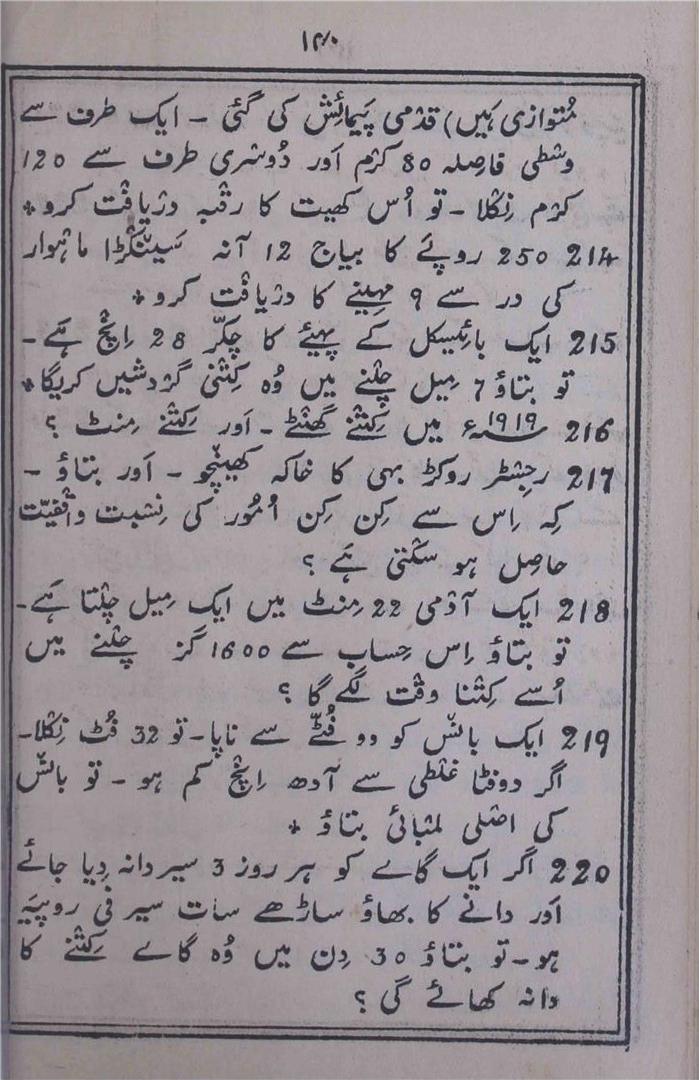 ۱۴۰
مُتوازی ہَیں) قدْمی پَیمائِش کی گئی - ایک طرف سے
وسْطی فاصِلہ 80 کرْم اَور دُوسْری طرف سے 120
کرْم نِکْلا - تو اُس کھیت کا رقْبہ درْیافْت کرو *
214 250 روپَئے کا بیاج 12 آنہ سَینْکڑا ماہْوار
کی در سے 9 مہِینے کا درْیافْت کرو *
215 ایک بائِیسکل کے پہِئے کا چکّر 28 اِنْچ ہَے -
تو بتاؤ 7 مِیل چلْنے میں وُہ کِتْنی گرْدشیں کریگا *
216 ۱۹۱۹ء میں کِتْنے گھنْٹے - اَور کِتْنے مِنٹ ؟
217 رجِسْٹر روکڑ بہی کا خاکہ کھینْچو - اَور بتاؤ -
کِہ اِس سے کِن کِن اُمُور کی نِسْبت واقْفِیّت
حاصِل ہو سکْتی ہَے ؟
218 ایک آدْمی 22 مِنٹ میں ایک مِیل چلْتا ہَے -
تو بتاؤ اِس حِساب سے 1600 گز چلْنے میں
اُسے کِتْنا وقْت لگے گا ؟
219 ایک بانْس کو دو فُٹّے سے ناپا - تو 32 فُٹ نِکْلا -
اگر دوفٹا غلْطی سے آدھ اِنْچ کم ہو - تو بانْس
کی اصْلی لمْبائی بتاؤ *
220 اگر ایک گاے کو ہر روز 3 سیر دانہ دِیا جائے
اَور دانے کا بھاؤ ساڑھے سات سیر فی روپَیہ
ہو - تو بتاؤ 30 دِن میں وُہ گاے کِتْنے کا
دانہ کھائے گی ؟